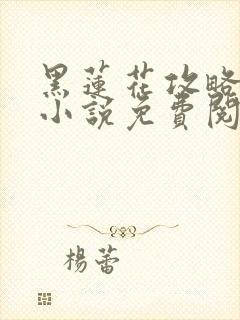 黑蓮花攻略
小說免費閱
楊蕾